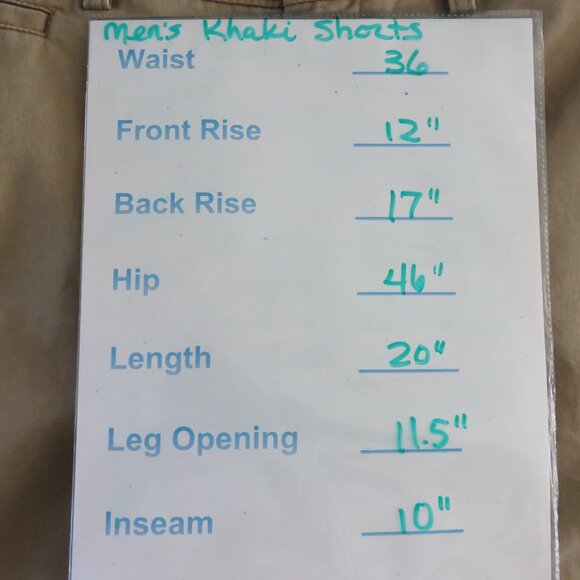 Men's Khaki Shorts
Waist 36
Front Rise 12"
Back Rise 17"
Hip 46"
Length 20"
Leg Opening 11.5"
Inseam 10"